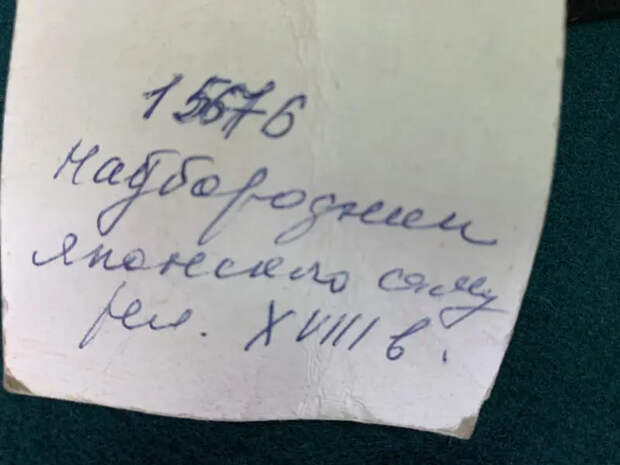 15676
Надбородник
японского саму
рая. XVIII в.